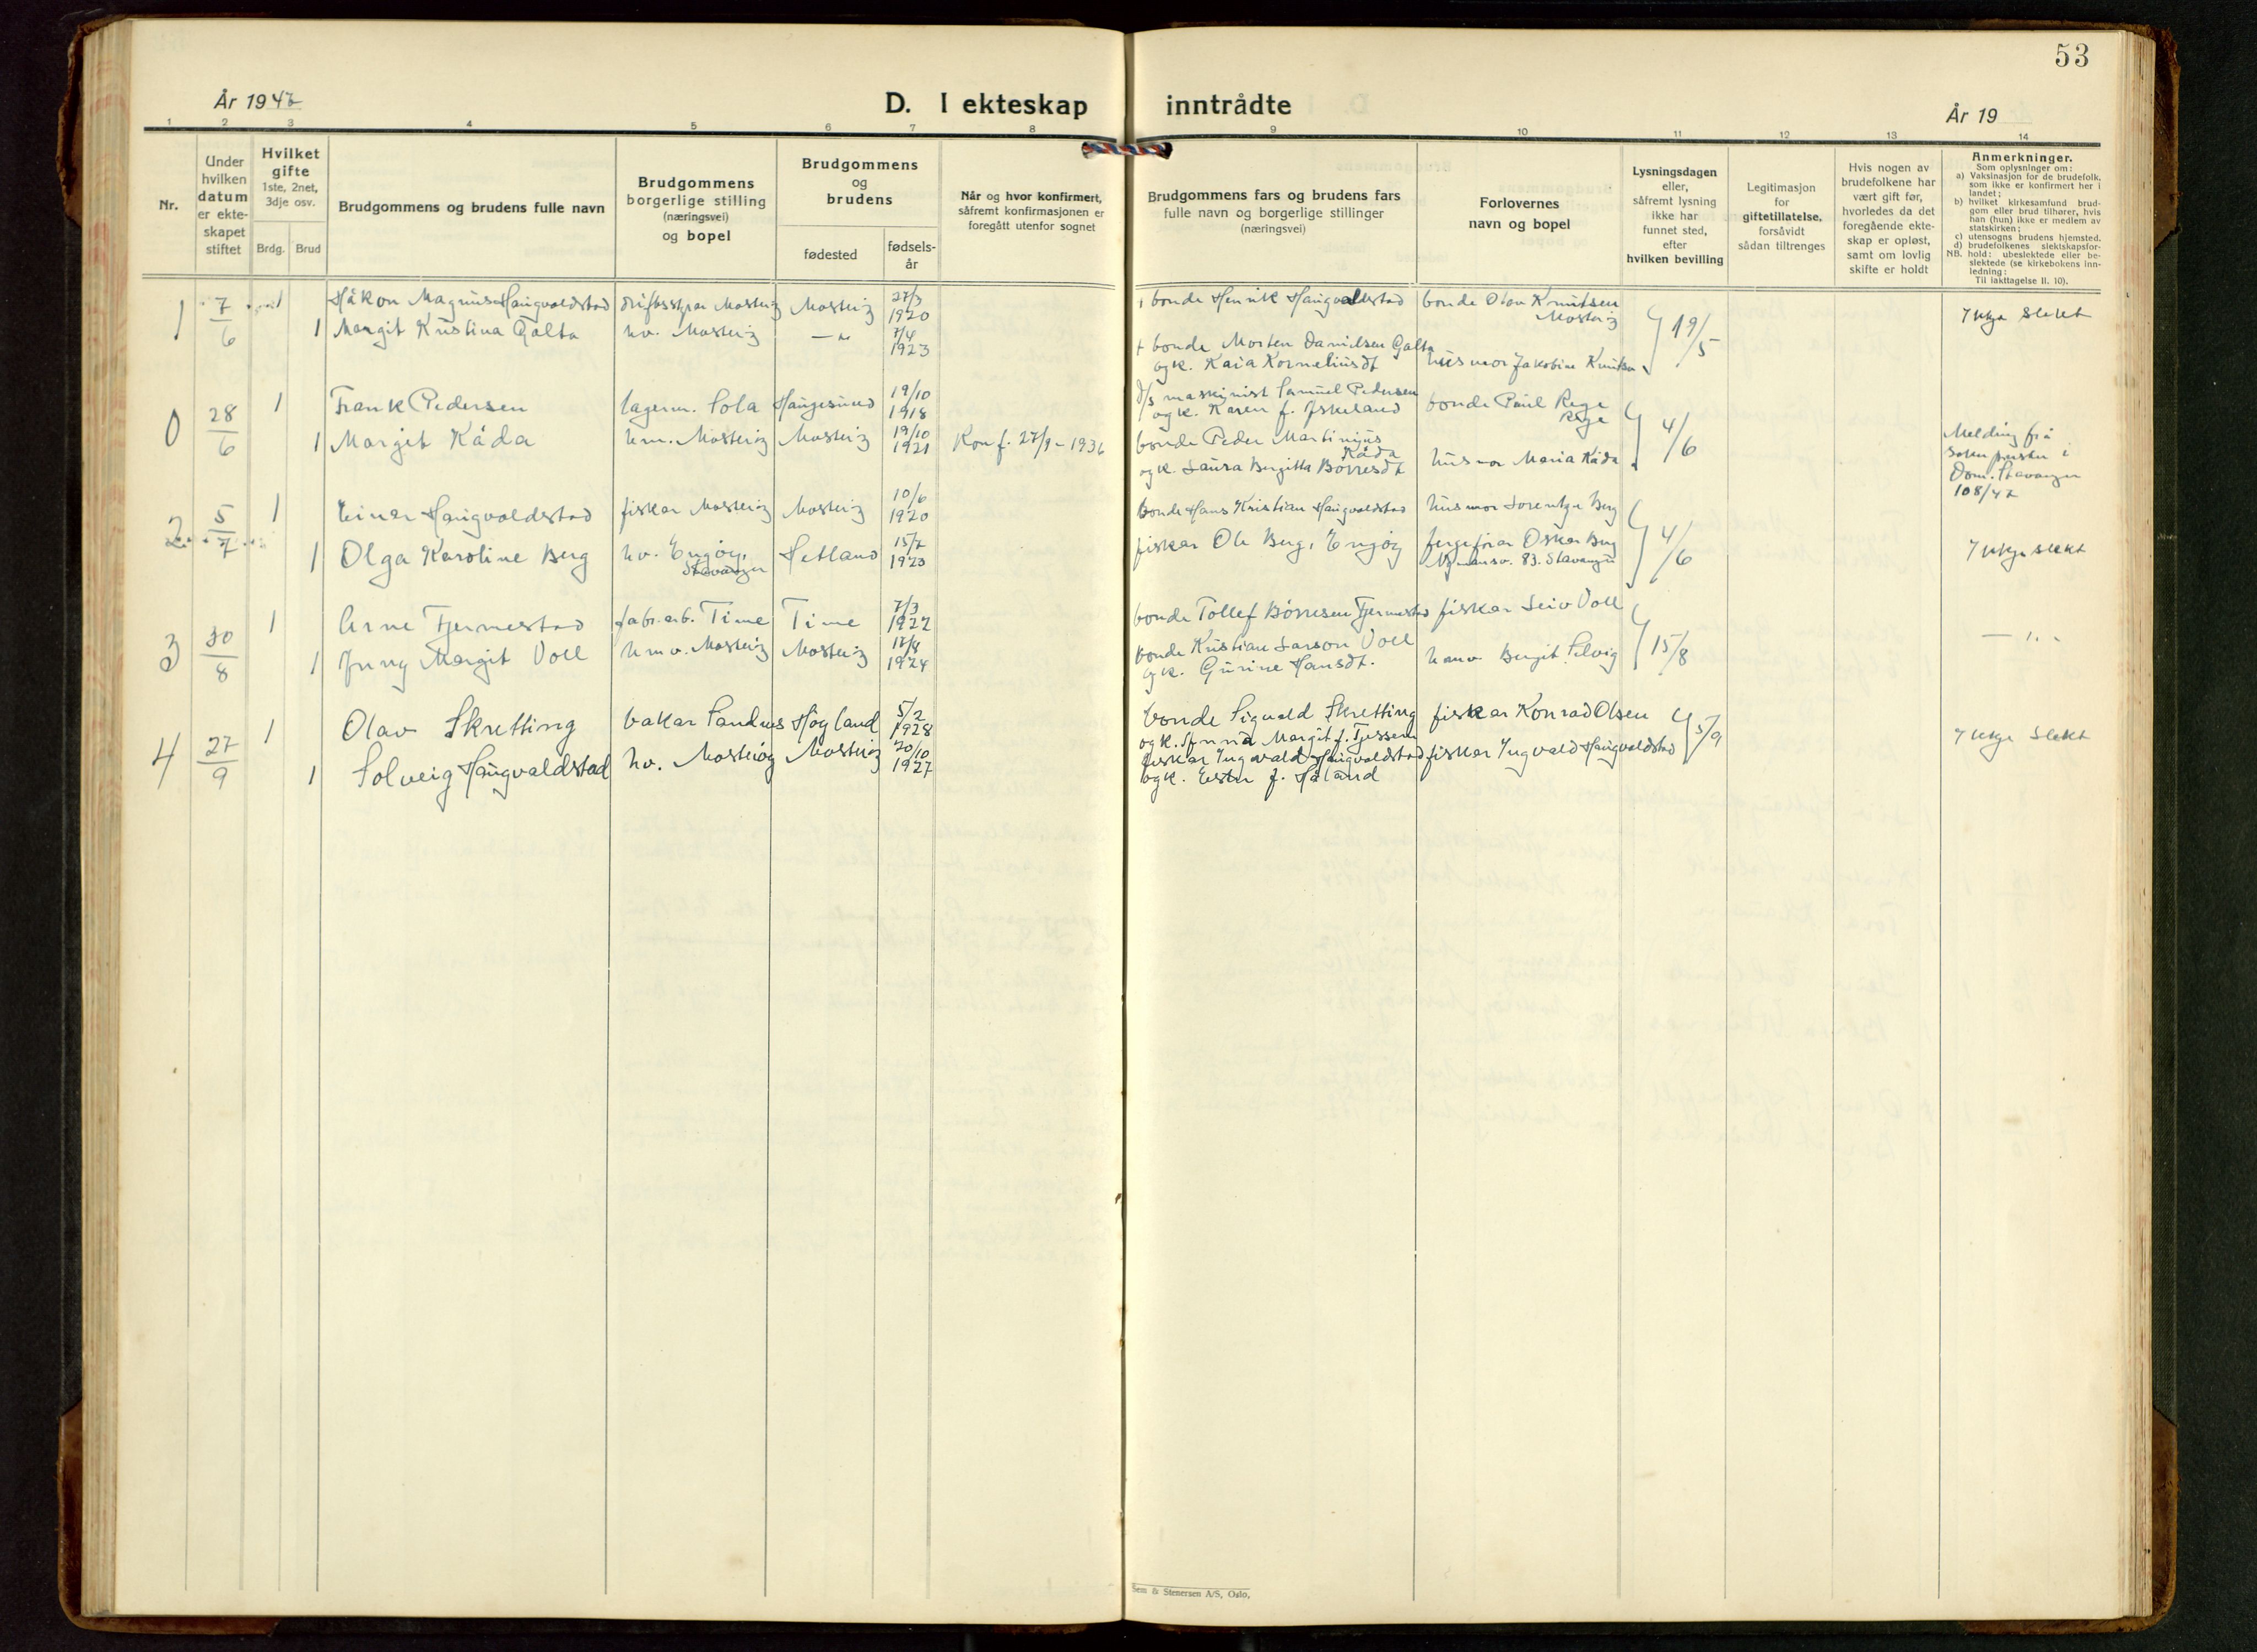 53
År 1947
D. I ekteskap inntrådte
År 19
1 2 3 4 5 6 7 8 9 10 11 12 13 14
Nr.
Under
hvilken
datum
er ekte-
skapet
stiftet
Hvilket
gifte
1ste, 2net,
3dje osv.
Brdg. Brud
Brudgommens og brudens fulle navn
Brudgommens
borgerlige stilling
(næringsvei)
og bopel
Brudgommens
og
brudens
fødested
fødsels-
år
Når og hvor konfirmert,
såfremt konfirmasjonen er
foregått utenfor sognet
Brudgommens fars og brudens fars
fulle navn og borgerlige stillinger
(næringsvei)
Forlovernes
navn og bopel
Lysningsdagen
eller,
såfremt lysning
ikke har
funnet sted,
efter
hvilken bevilling
Legitimasjon
for
giftetillatelse,
forsåvidt
sådan tiltrenges
Hvis nogen av
brudefolkene har
vært gift før,
hvorledes da det
foregående ekte-
skap er opløst,
samt om lovlig
skifte er holdt
Anmerkninger.
Som oplysninger om:
a) Vaksinasjon for de brudefolk,
som ikke er konfirmert her i
landet;
b) hvilket kirkesamfund brud-
gom eller brud tilhører, hvis
han (hun) ikke er medlem av
statskirken;
c) utensogns brudens hjemsted.
d) brudefolkenes slektskapsfor-
NB. hold: ubeslektede eller be-
slektede (se kirkebokens inn-
ledning:
Til iakttagelse II. 10).
1 7/6 1 Håkon Magnus Haugvaldstad Mosterøy Mosterøy 27/3 1920 bonde Henrik Haugvaldstad bonde Olav Knutsen Mosterøy 19/5 Ikkje slekt
1 Margit Kristina Galta hv. Mosterøy — " 7/4 1923 + bonde Morten Danielsen Galta husmor Jakobine Knutsen
og k. Kaia Korneliusdt
0 28/6 1 Frank Pedersen lagerm. Sola Haugesund 19/10 1918 d/s maskinist Samuel Pedersen bonde Paul Rege Rege 4/6
og k. Karen f. Iskeland
1 Margit Kåda hm. Mosterøy Mosterøy 19/10 1921 Konf. 27/9-1936 bonde Peder Martinius Kåda husmor Maria Kåda
og k. Laura Bergitta Børresdt
Melding frå
soknepresten i
Dom. Stavanger
108/47
2 5/7 1 Einar Haugvaldstad fiskar Mosterøy Mosterøy 10/6 1920 Bonde Hans Kristian Haugvaldstad husmor Sorentze Berg 4/6
1 Olga Karoline Berg hv. Engøy, Stavanger Hetland 15/7 1923 fiskar Ole Berg, Engøy fergeførar Oskar Berg Ikkje slekt
83. Stavanger
3 30/8 1 Arne Fjermestad fabr.arb. Time Time 7/3 1922 bonde Tollef Børresen Fjermestad fiskar Leiv Voll 15/8 — " -
1 Jenny Margit Voll hmv. Mosterøy Mosterøy 17/8 1924 bonde Kristian Larson Voll hmv Bergit Selvig
og k. Gurine Hansdt.
4 27/9 1 Olav Skretting bakar Sandnes Høyland 5/2 1928 bonde Sigvald Skretting fiskar Konrad Olsen 5/9 Ikkje slekt
og k. Margit f. Tjessem
1 Solveig Haugvaldstad hv. Mosterøy Mosterøy 20/10 1927 fiskar Ingvald Haugvaldstad fiskar Ingvald Haugvaldstad
og k. Ester f. Håland
Sem & Stenersen A/S, Oslo.